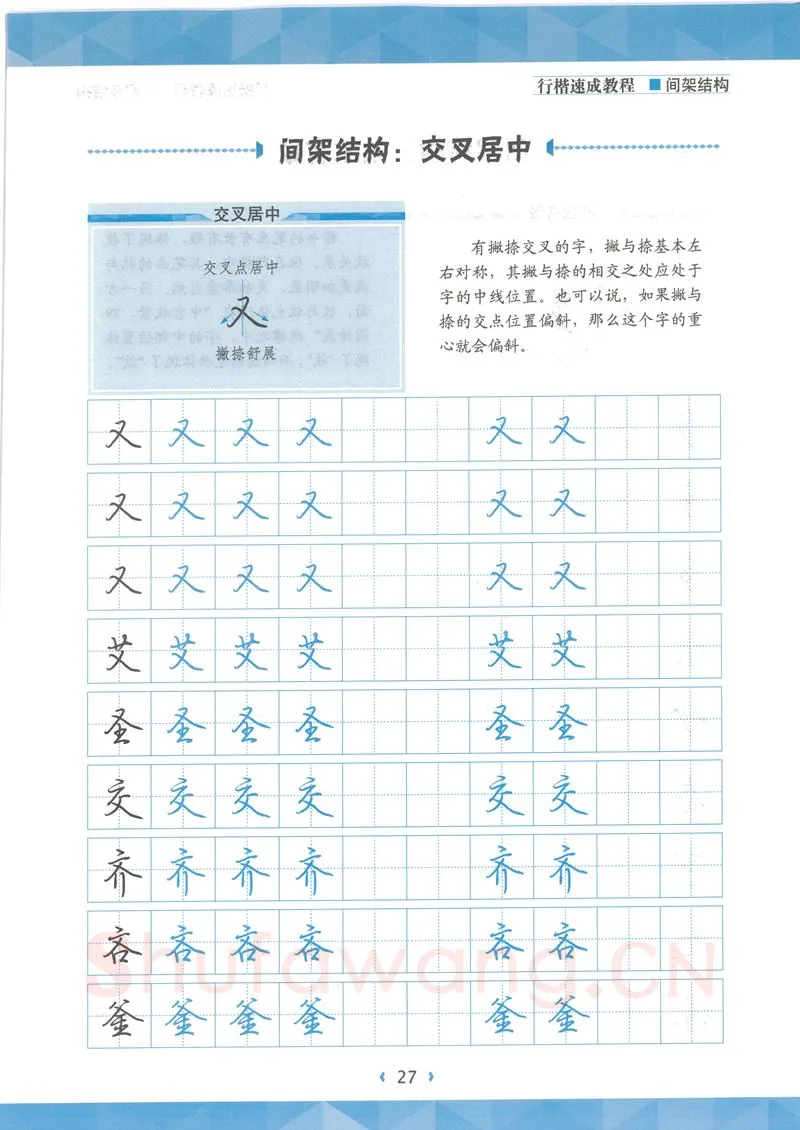 行楷速成教程 ■ 间架结构
间架结构：交叉居中
交叉居中
交叉点居中
又
撇捺舒展
有撇捺交叉的字，撇与捺基本左
右对称，其撇与捺的相交之处应处于
字的中线位置。也可以说，如果撇与
捺的交点位置偏斜，那么这个字的重
心就会偏斜。
又 又 又 又 又 又
又 又 又 又 又 又
又 又 又 又 又 又
艾 艾 艾 艾 艾 艾
圣 圣 圣 圣 圣 圣
交 交 交 交 交 交
齐 齐 齐 齐 齐 齐
吝 吝 吝 吝 吝 吝
釜 釜 釜 釜 釜 釜
Shufawang.CN
27